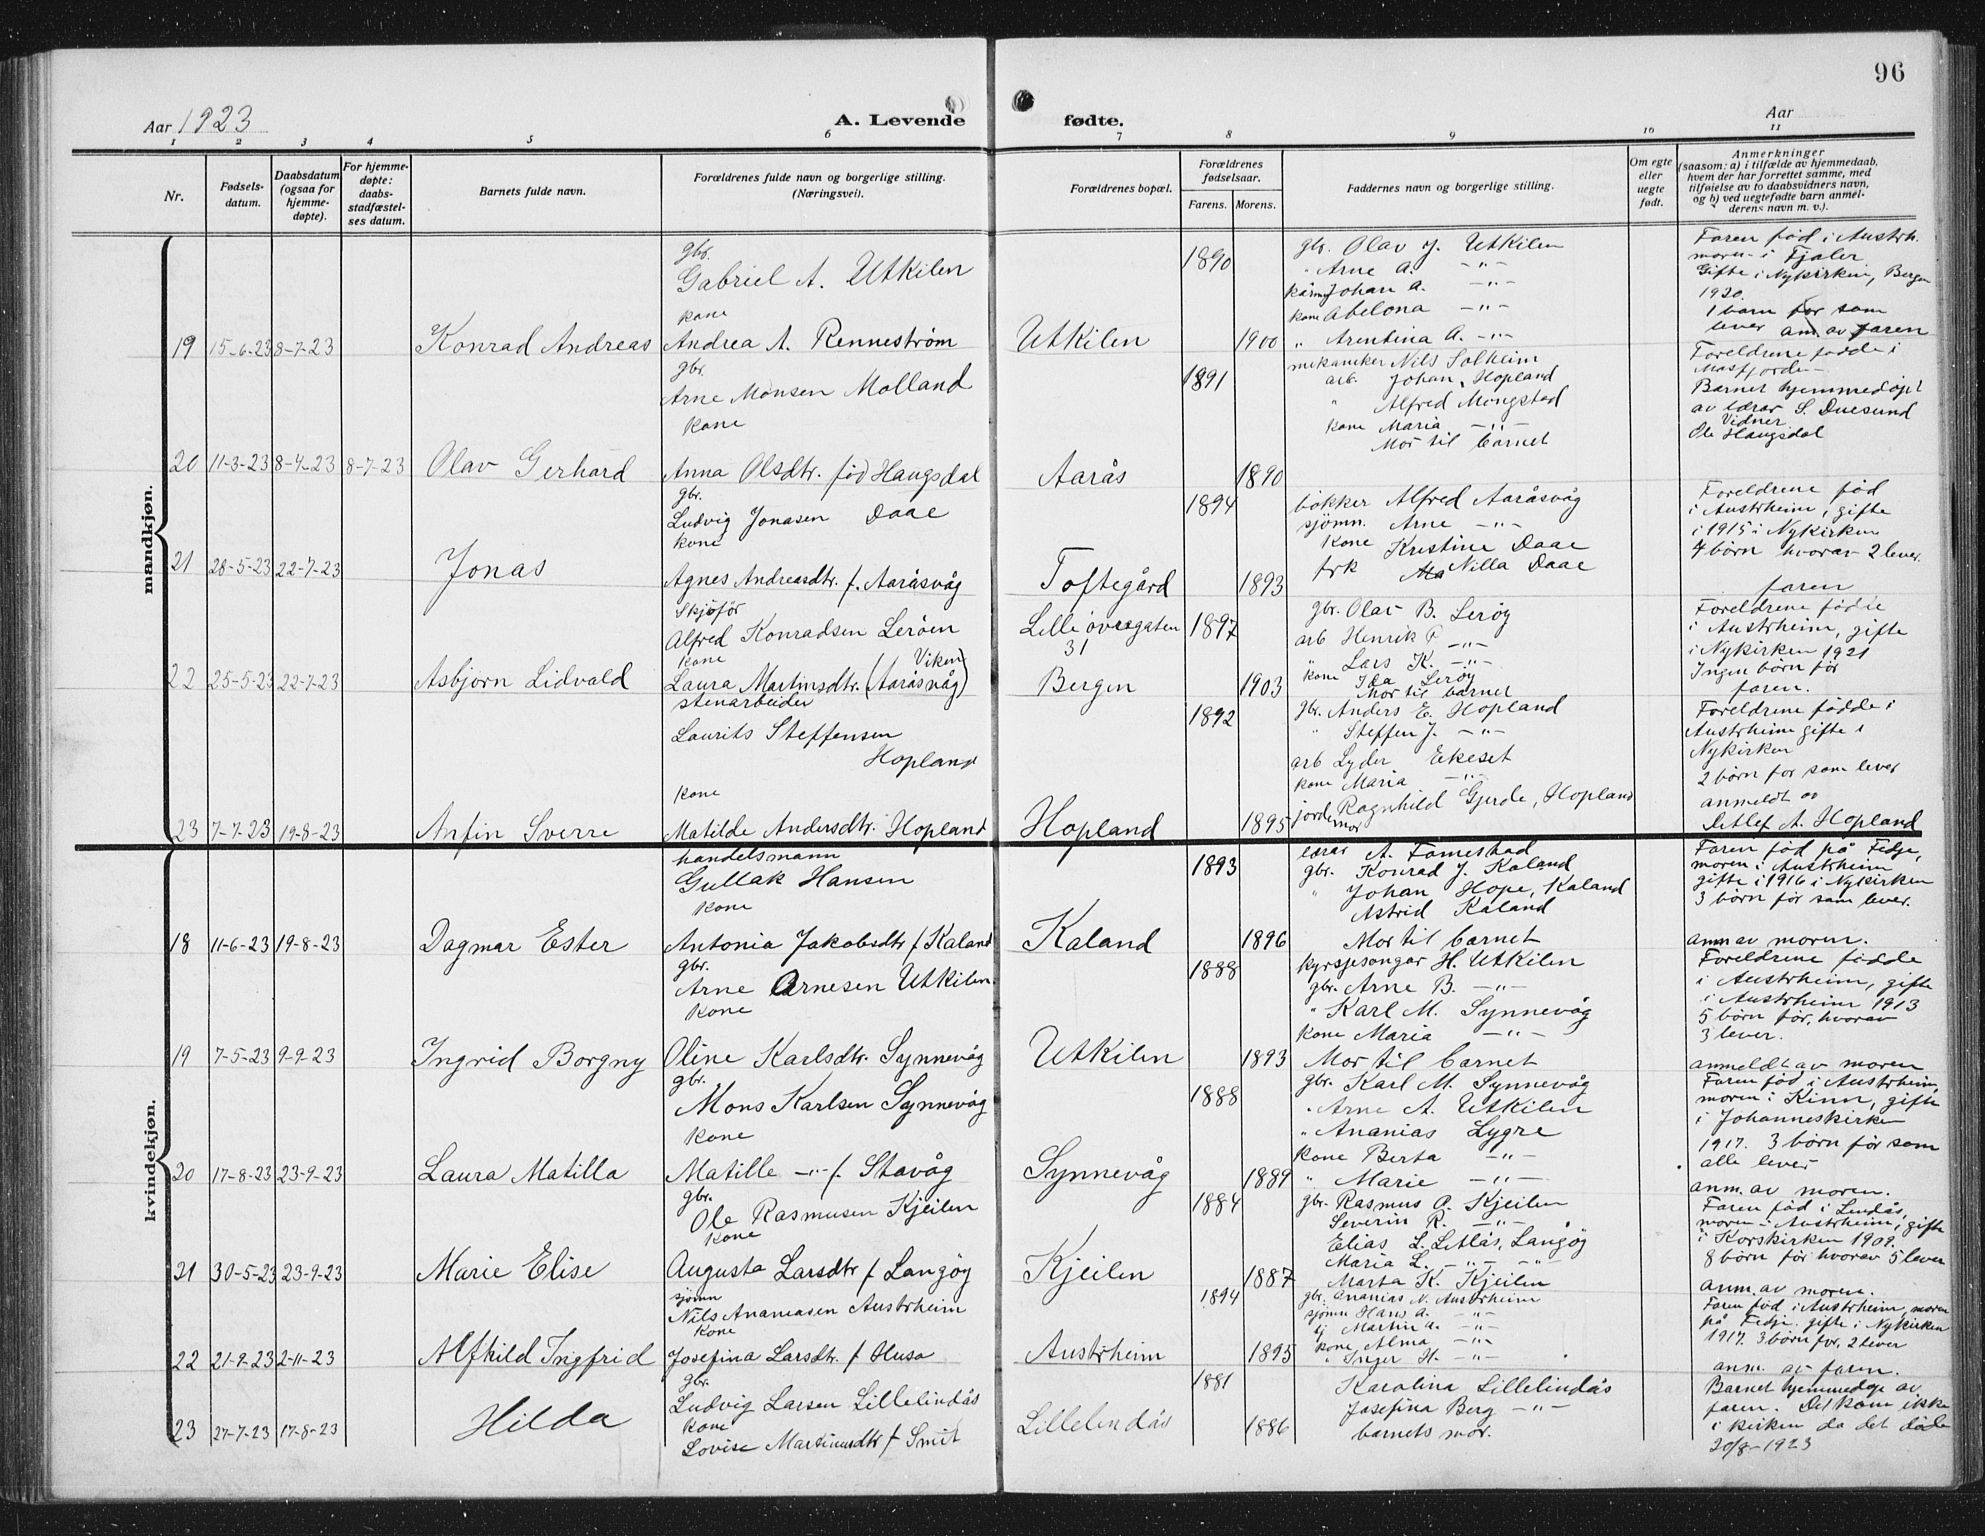 96
Aar 1923
A. Levende
fødte.
Aar
1 2 3 4 5 6 7 8 9 10 11
Nr.
Fødsels-
datum.
Daabsdatum
(ogsaa for
hjemme-
døpte).
For hjemme-
døpte:
daabs-
stadfæstel-
ses datum.
Barnets fulde navn.
Forældrenes fulde navn og borgerlige stilling.
(Næringsvei).
Forældrenes bopæl.
Forældrenes
fødselsaar.
Farens. Morens.
Faddernes navn og borgerlige stilling.
Om egte
eller
uegte
født.
Anmerkninger
(saasom: a) i tilfælde av hjemmedaab,
hvem der har forrettet samme, med
tilføielse av to daabsvidners navn,
og b) ved uegtefødte barn anmel-
derens navn m. v.).
mandkjøn.
19 15-6-23 8-7-23
Konrad Andreas
gbr.
Gabriel A. Utkilen
kone
Andrea A. Rennestrøm
Utkilen
1890
1900
gbr. Olav J. Utkilen
" Arne A. -"-
Johan A. -"-
kone Abelona -"-
" Arentina A. -"-
Faren fød i Austrh.
moren i Fjaler
Gifte i Nykirken, Bergen
1920.
1 barn før som
lever
anm av faren
20 11-3-23 8-4-23 8-7-23
Olav Gerhard
gbr.
Arne Monsen Molland
kone
Anna Olsdtr. fød Haugsdal
Aarås
1891
1890
mekaniker Nils Solheim
arb. Johan Hopland
" Alfred Mongstad
kone Maria -"-
Mor til barnet
Foreldrene fødde i
Masfjorden
Barnet hjemmedøpt
av lærar S. Duesund
Vidner
Ole Haugsdal
21 28-5-23 22-7-23
Jonas
gbr.
Ludvig Jonasen Daae
kone
Agnes Andreasdtr. f. Aaråsvåg
Toftegård
1894
1893
bøkker Alfred Aaråsvåg
sjømn. Arne -"-
kone Kristine Daae
frk Nilla Daae
Foreldrene fød
i Austrheim, gifte
i 1915 i Nykirken
4 børn hvorav 2 lever.
faren
22 25-5-23 22-7-23
Asbjørn Lidvald
Skjofør
Alfred Konradsen Lerøen
kone Viken
Laura Martinsdtr. (Aaråsvåg)
Lille øvregaten
31
Bergen
1897
1903
gbr. Olav B. Lerøy
arb Henrik P. -"-
" Lars K. -"-
kone Ida Lerøy
Mor til barnet
Foreldrene fødde
i Austrheim, gifte
i Nykirken 1921
Ingen børn før
faren.
23 7-7-23 19-8-23
Anfin Sverre
stenarbeider
Laurits Steffensen
Hopland
kone
Matilde Andersdtr. Hopland
Hopland
1892
1895
gbr. Anders E. Hopland
" Steffen J. -"-
arb Lyder Ekeset
kone Maria -"-
jorde Ragnhild Gjerde, Hopland
mor
Foreldrene fødde i
Austrheim gifte i
Nykirken
2 børn før som lever
anmeldt av
Detlef A. Hopland
kvindekjøn.
18 11-6-23 19-8-23
Dagmar Ester
handelsmann
Gullak Hansen
kone
Antonia Jakobsdtr f Kaland
Kaland
1893
1896
lærar A. Famestad
gbr. Konrad J. Kaland
" Johan Hope, Kaland
Astrid Kaland
Mor til barnet
Faren fød på Fedje,
moren i Austrheim
gifte i 1916 i Nykirken
3 børn før som lever.
anm av moren.
19 7-5-23 9-9-23
Ingrid Borgny
gbr.
Arne Arnesen Utkilen.
kone
Oline Karlsdtr. Synnevåg
Utkilen
1888
1893
kyrsjesongar H. Utkilen
gbr. Arne B. -"-
" Karl M. Synnevåg
kone Maria -"-
Mor til barnet
Foreldrene fødde
i Austrheim, gifte
i Austrheim 1913
5 børn før, hvorav
3 lever.
anmeldt av moren
20 17-8-23 23-9-23
Laura Matilla
gbr.
Mons Karlsen Synnevåg
kone
Matille -"- f Stavåg
Synnevåg
1888
1889
gbr. Karl M. Synnevåg
" Arne A. Utkilen
" Ananias Lygre
kone Berta -"-
" Marie -"-
Faren fød i Austrheim,
moren i Kinn, gifte
i Johanneskirken
1917. 3 børn før som
alle lever
anm. av moren.
21 30-5-23 23-9-23
Marie Elise
gbr.
Ole Rasmusen Kjeilen
kone
Augusta Larsdtr f Langøy
Kjeilen
1884
1887
gbr. Rasmus O. Kjeilen
Severin R. -"-
Elias L. Litlås, Langøy
Maria L. -"- -"-
Marta K. Kjeilen
Faren fød i Lindås,
moren i Austrheim, gifte
i Korskirken 1909.
8 børn før hvorav 5 lever
anm. av moren.
22 21-9-23 2-11-23
Alfhild Ingfrid
sjømn
Nils Ananiasen Austrheim
kone
Josefina Larsdtr. f Husa
Austrheim
1894
1895
gbr. Ananias N. Austrheim
sjømn Hans A. -"-
Martin A. -"-
kone Alma -"-
" Inger H. -"-
Faren fød i Austrheim, moren
på Fedje. gifte i Nykirken
1917. 3 børn før, 2 lever
anm. av faren.
23 27-7-23 17-8-23
Hilda
gbr.
Ludvig Larsen Lillelindås
kone
Lovise Martinusdtr f Smit
Lillelindås
1881
1886
Karolina Lillelindås
Josefina Berg -"-
barnets mor.
Barnet hjemmedøpt av
faren. Det kom ikke
i kirken da det døde
20/8-1923